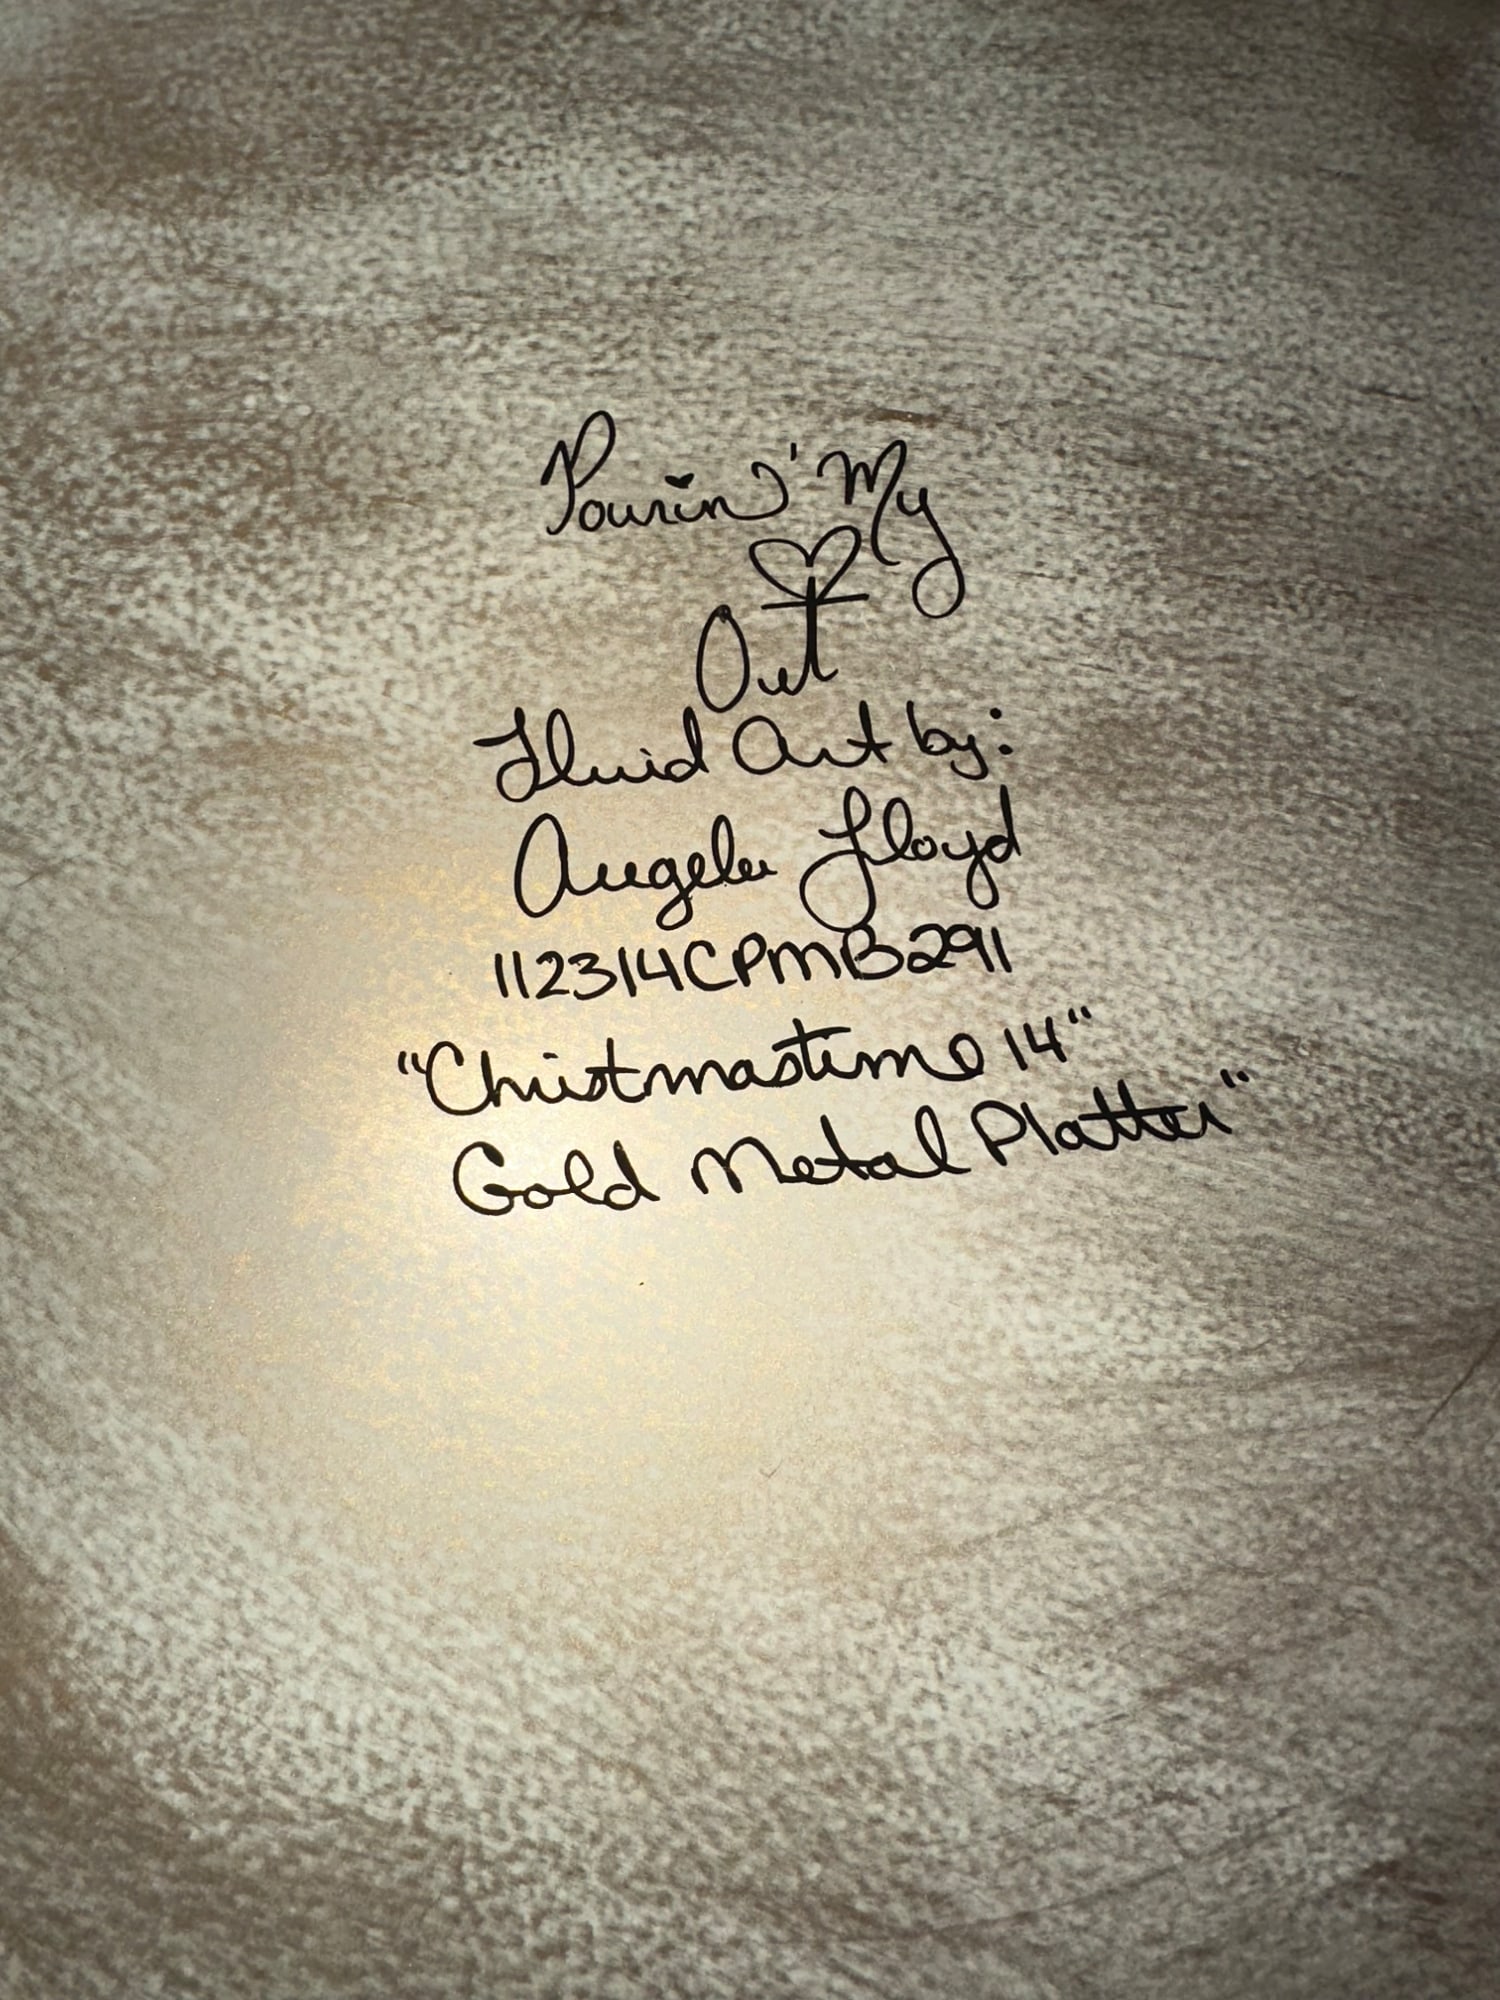 Pourin' My
♡
Out
Fluid Art by:
Angela Floyd
112314CPMB291
"Christmastime 14"
Gold Metal Platter"